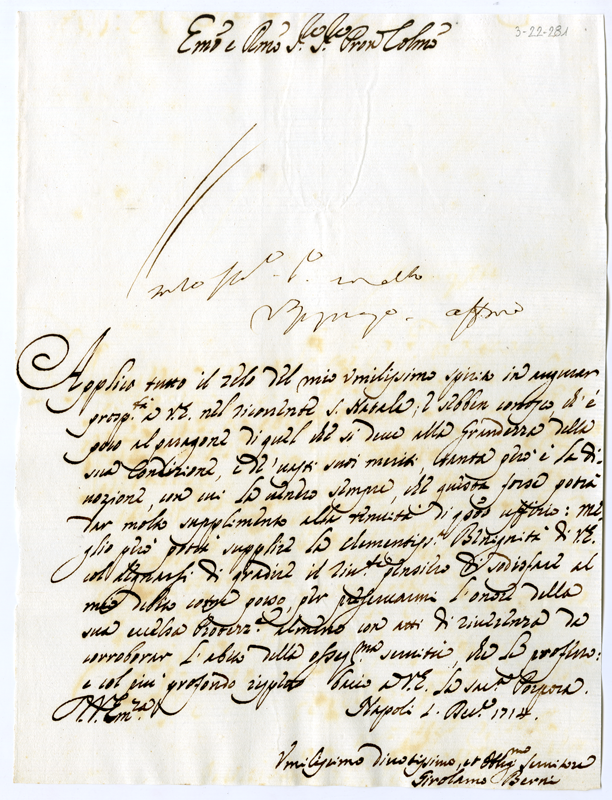 3-22-281
Emo e Rmo Sr. Sr. Pron Colmo
Applico tutto il zelo del mio Umilissimo spirito in augurar
prosptà a V.E. nel ricorrente S. Natale; e sebben conosco, ch'è
poco al paragone di quel che si deve alla Grandezza della
sua Condizione, e de' vasti suoi meriti, tanta però è la di-
vozione, con cui la venero sempre, che questa forse potrà
dar molto supplimento alla tenuità di questo uffizio: me-
glio però potrà supplire la clementissa Benignità di V.E.
col degnarsi di gradire il pensiero di sodisfare al
mio debito come posso, per preservarmi l'onore della
sua eccelsa Protezne almeno con atti di riverenza da
corroborar l'alta della osseqma servitù, che le professo:
e col più profondo rispetto bacio a V.E. la sacra Porpora.
V. Emza
Napoli 1714.
Umilissimo divotissimo, et Obligmo Servitore
Girolamo Berni